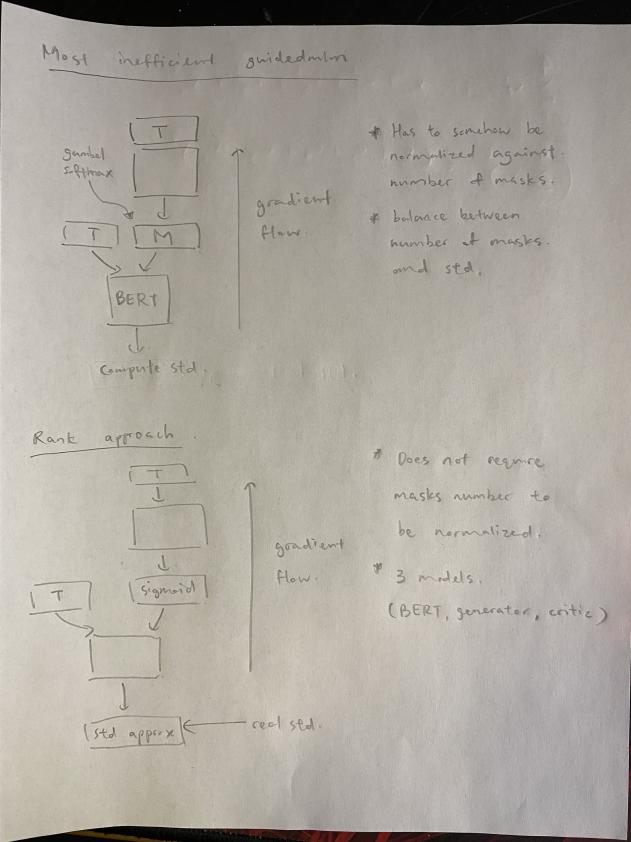 Most inefficient guidedmlm
T
gumbel
softmax
T
M
BERT
Compute std.
gradient
flow.
* Has to somehow be
normalized against
number of masks.
* balance between
number of masks.
and std.
Rank approach.
T
sigmoid
T
std approx
real std.
gradient
flow.
* Does not require
masks number to
be normalized.
* 3 models.
(BERT, generator, critic)